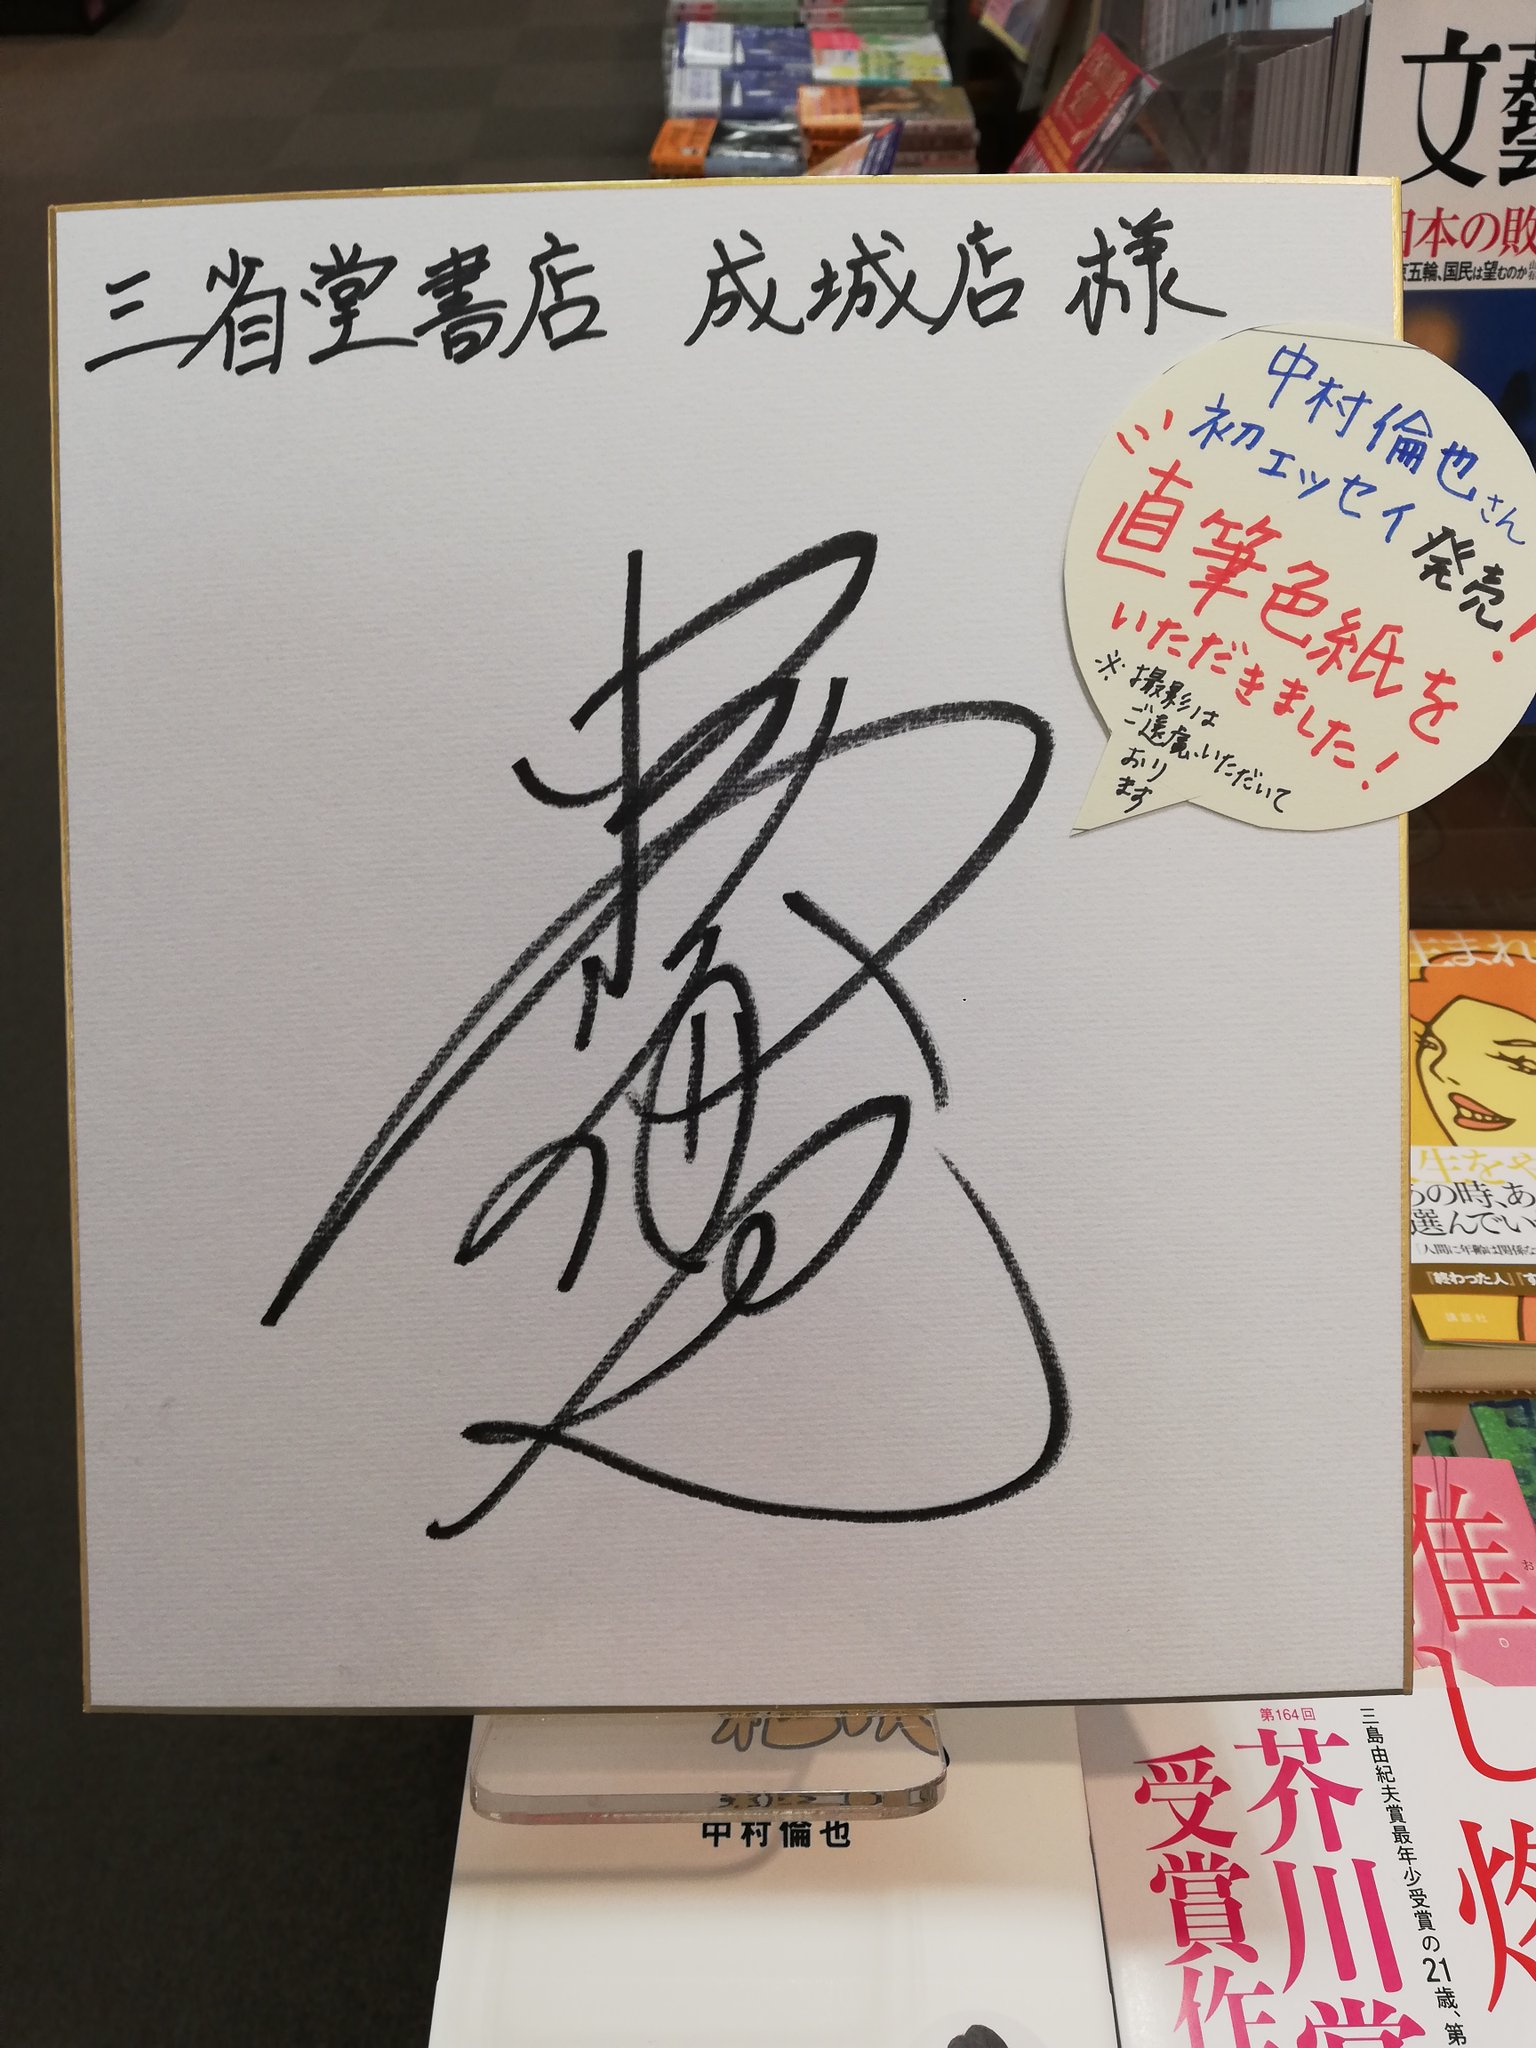 三省堂書店 成城店 様
中村倫也さん
初エッセイ発売!
直筆色紙を
いただきました!
※撮影は
ご遠慮いただいて
おり
ます
文藝
日本の敗
五輪、国民は望むのか
生まれ
生をや
あの時、あ
選んでい
「人間に年齢は関係な
『終わった人』『す
講談社
推し燃
第164回
芥川賞
受賞作
三島由紀夫賞最年少受賞の21歳、第
中村倫也